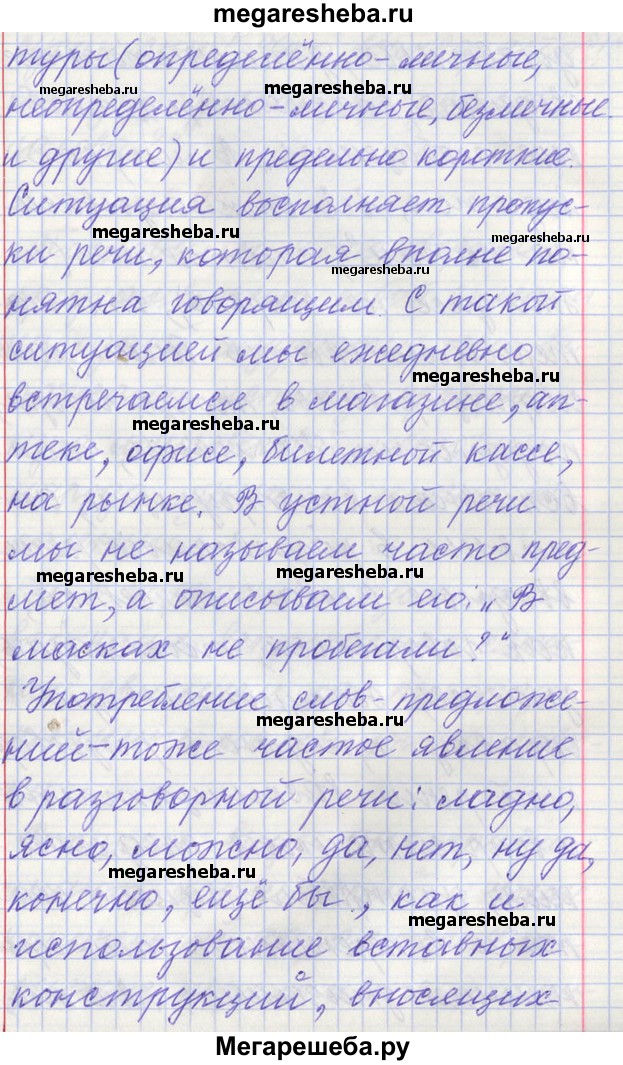 megaresheba.ru
туры (определённо-личные,
megaresheba.ru
megaresheba.ru
неопределённо-личные, безличные
и другие) и предельно короткие.
Ситуация восполняет пропус-
megaresheba.ru
megaresheba.ru
ки речи, которая вполне по-
megaresheba.ru
нятна говорящим. С такой
ситуацией мы ежедневно
megaresheba.ru
встречаемся в магазине, ап-
megaresheba.ru
теке, офисе, билетной кассе,
на рынке. В устной речи
мы не называем часто пред-
megaresheba.ru
megaresheba.ru
мет, а описываем его. „В
масках не пробегали?"
Употребление слов-предложе-
megaresheba.ru
ний-тоже частое явление
в разговорной речи: ладно,
ясно, можно, да, нет, ну да,
megaresheba.ru
конечно, ещё бы, как и
megaresheba.ru
использование вставных
конструкций, вносящих
Мегарешеба.ру